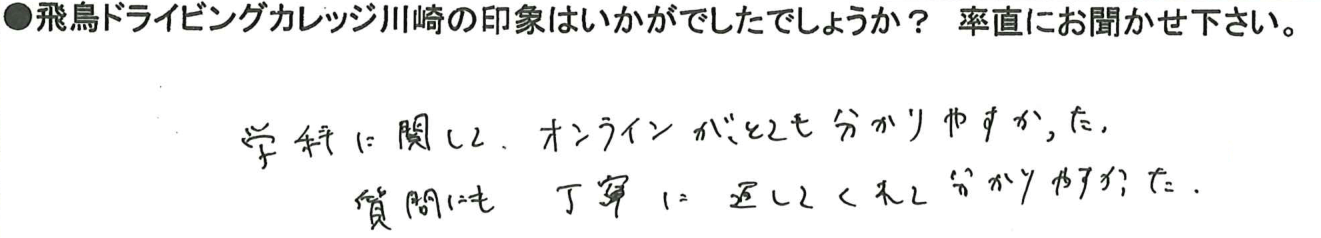 ●飛鳥ドライビングカレッジ川崎の印象はいかがでしたでしょうか？ 率直にお聞かせ下さい。
学科に関して、オンラインがとても分かりやすかった。
質問にも 丁寧に返してくれて分かりやすかった。